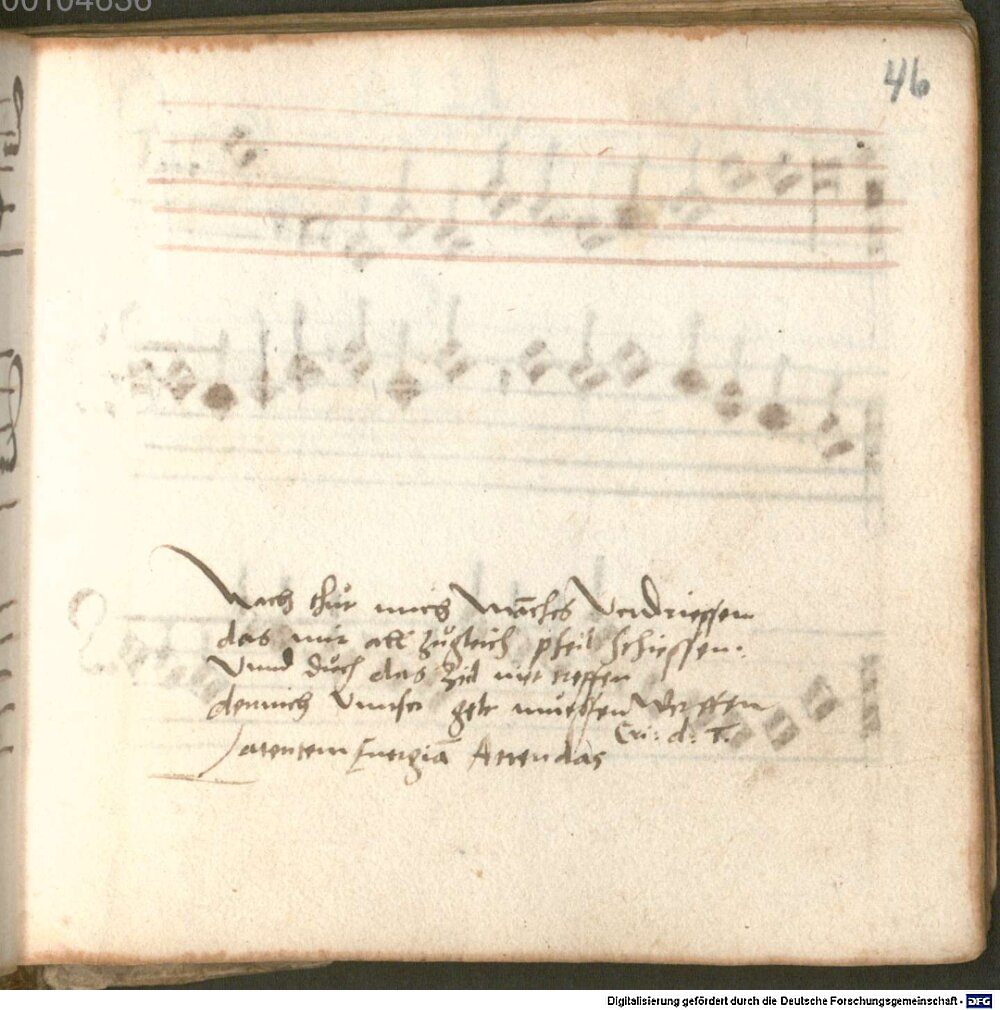 00104636
46
Noch thůt mich manches Verdriessen
das mir all zůgleich pfeil schiessen.
Vnnd dŭch das Zil nit treffen
dennich Vnnser gelt muessen
Cri: d: T.
Latentem Energiā Attendas
Digitalisierung gefördert durch die Deutsche Forschungsgemeinschaft - DFG